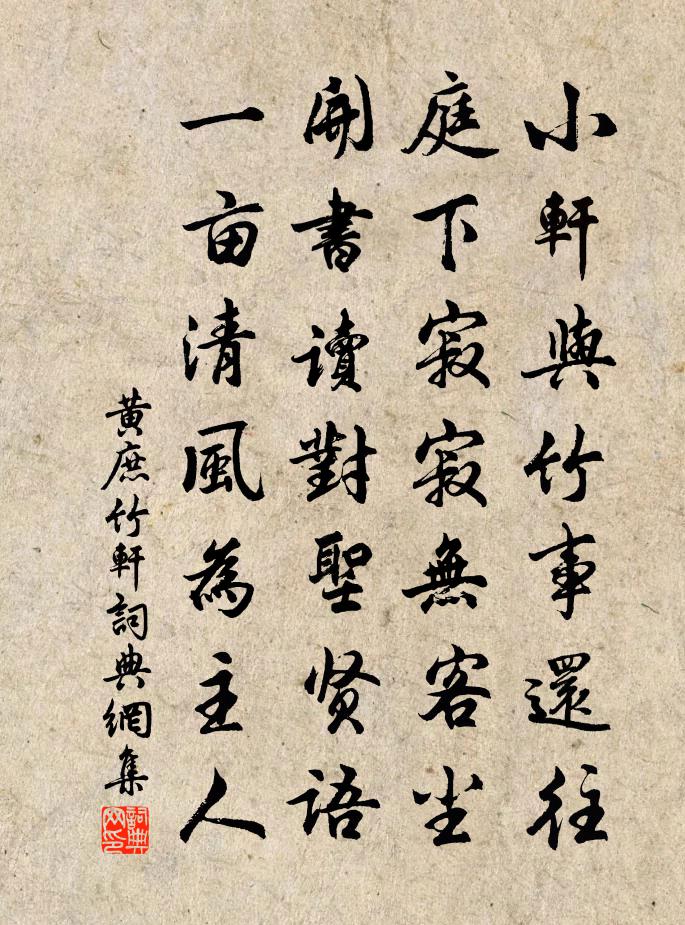 小軒與竹事還往
庭下寂寂無客尘
開書讀對聖贤語
一亩清風為主人
黃庶竹軒詞典網集
詞典网印